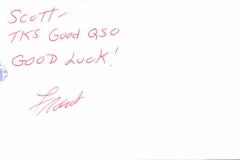 SCOTT-
TKS Good QSO
GOOD LUCK!